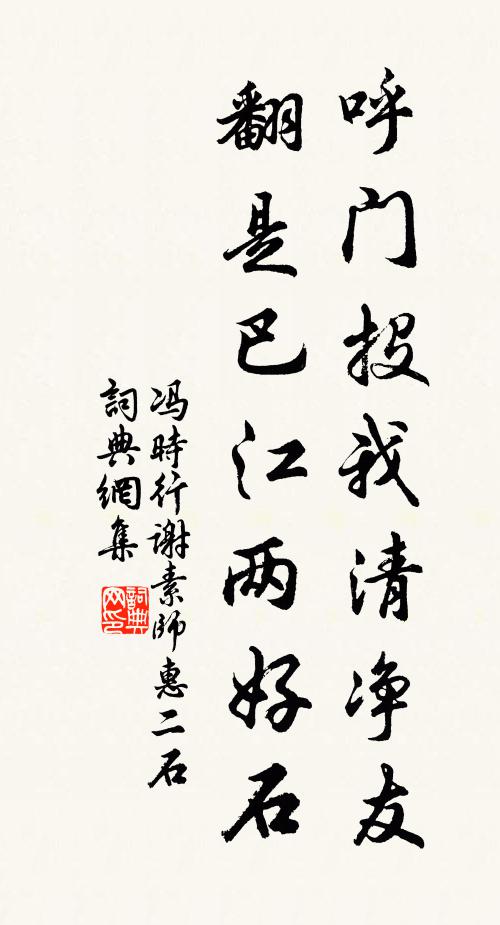 呼门投我清净友
翻是巴江两好石
冯時行谢素師惠二石
詞典網集
詞典网印